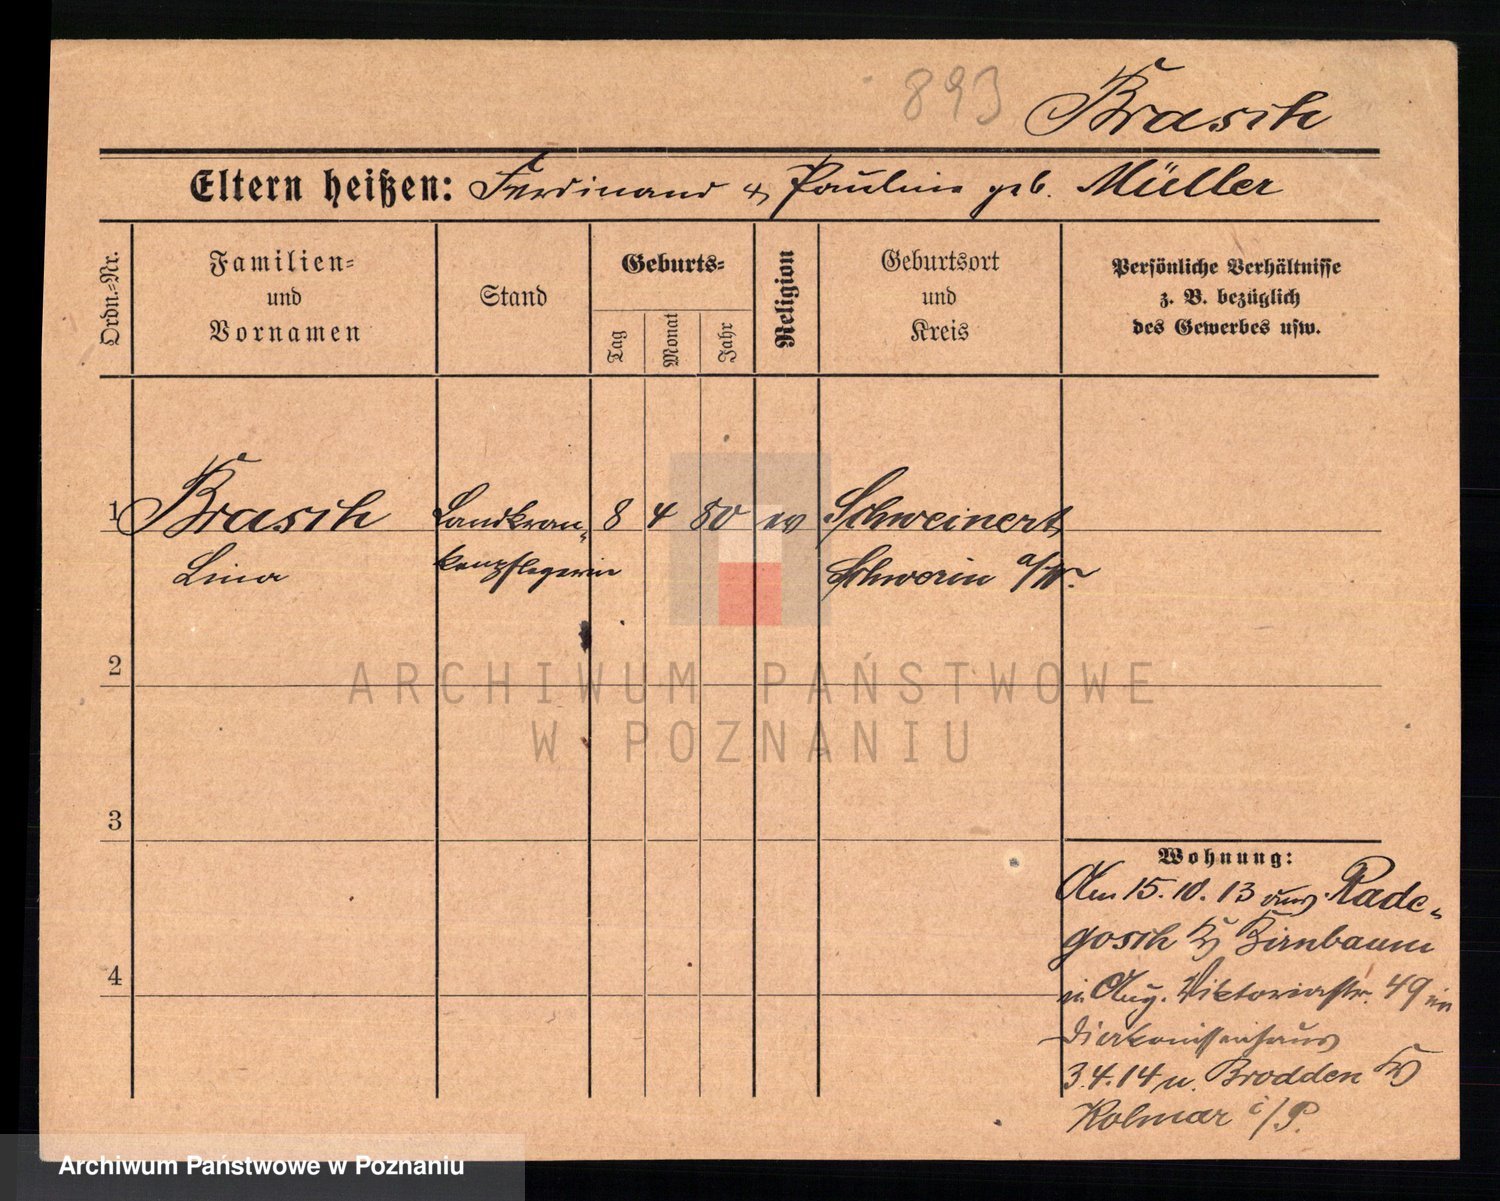 893 Brasch
Eltern heißen: Ferdinand u Pauline geb. Müller
Ordn.=Nr.
Familien=
und
Vornamen
Stand
Geburts=
Tag
Monat
Jahr
Religion
Geburtsort
und
Kreis
Persönliche Verhältnisse
z. B. bezüglich
des Gewerbes usw.
1 Brasch Landkran= 8 4 80 ev Schweinert
Lina kenpflegerin Schwerin a/W.
2
3
Wohnung:
Am 15. 10. 13 aus Rade=
gosch Kr Birnbaum
4
in Aug. Viktoriastr. 49 im
Diakonissenhaus
3.4.14 n. Brodden Kr
Kolmar i/P.
ARCHIWUM PAŃSTWOWE
W POZNANIU
Archiwum Państwowe w Poznaniu